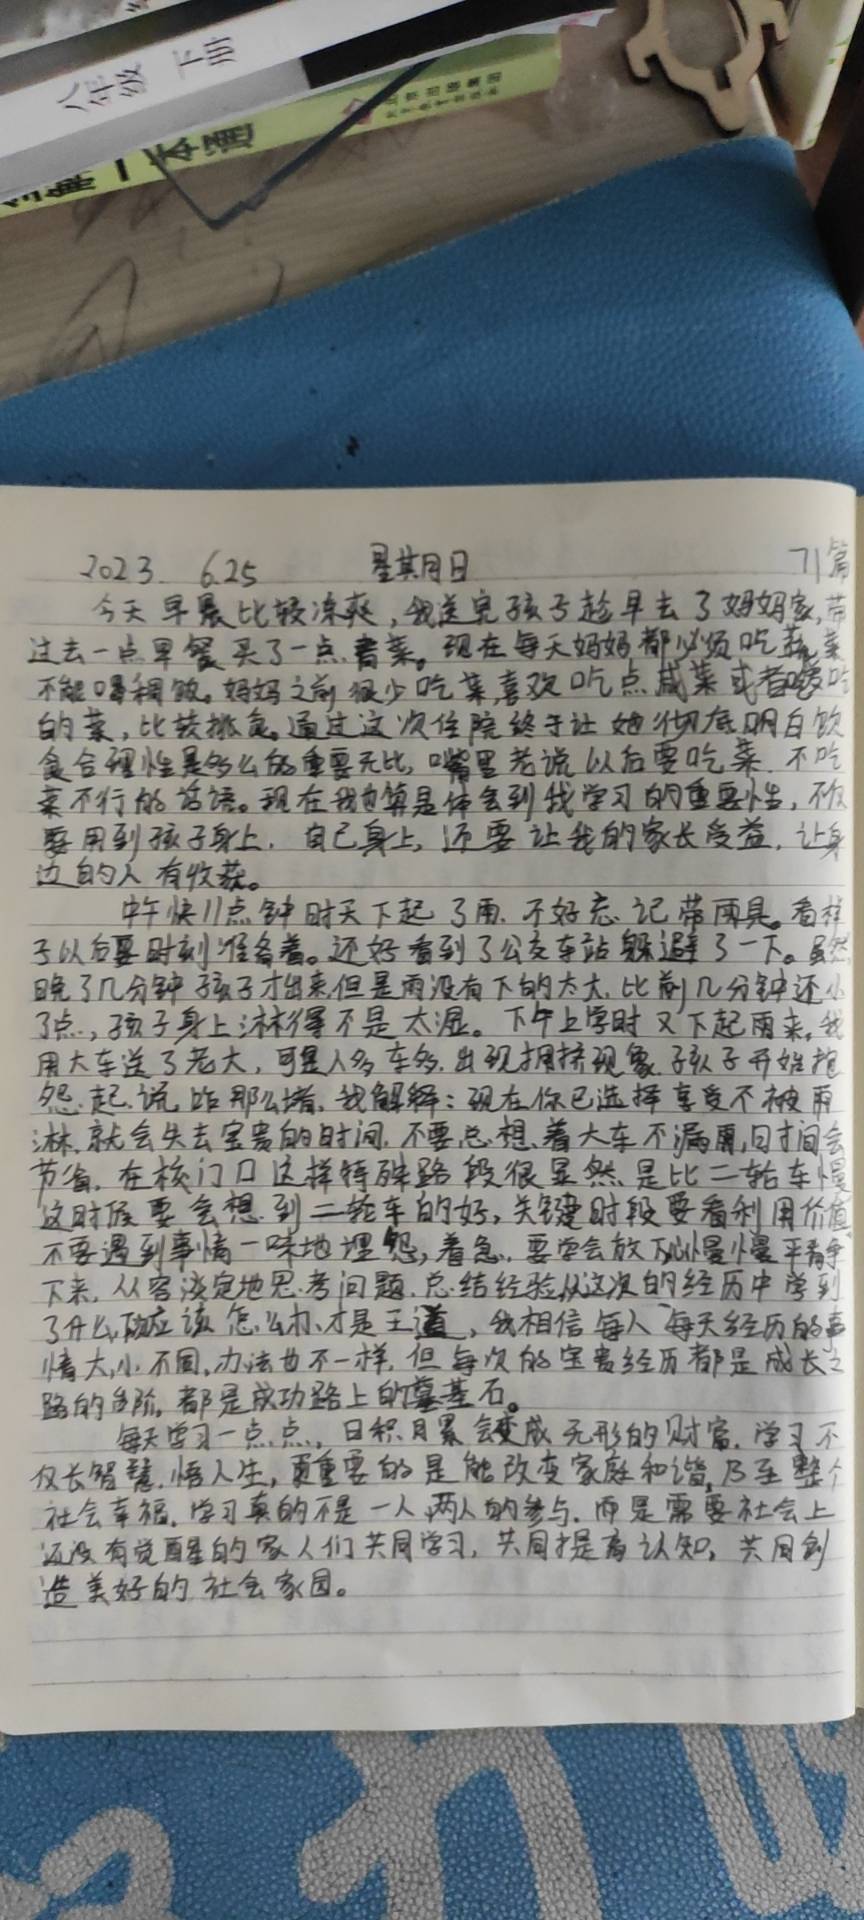 八年级 下册
一本通
2023. 6.25 星期日 71篇
今天早晨比较凉爽,我送完孩子趁早去了妈妈家,带
过去一点早餐买了一点青菜。现在每天妈妈都必须吃蔬菜
不能喝稠饭。妈妈之前很少吃菜,喜欢吃点咸菜或者爱吃
的菜,比较挑食。通过这次住院终于让她彻底明白饮
食合理性是多么的重要无比,嘴里老说以后要吃菜.不吃
菜不行的话语。现在我也算是体会到我学习的重要性,不仅
要用到孩子身上.自己身上,还要让我的家长受益,让身
边的人有收获。
中午快11点钟时天下起了雨.不好忘记带雨具。看样
子以后要时刻准备着。还好看到了公交车站躲避了一下。虽然
晚了几分钟孩子才出来,但是雨没有下的太大.比前几分钟还小
了点,孩子身上淋得不是太湿。下午上学时又下起雨来,我
用大车送了老大,可是人多车多.出现拥挤现象.孩子开始抱
怨起.说咋那么堵.我解释:现在你已选择享受不被雨
淋.就会失去宝贵的时间.不要总想着大车不漏雨,时间会
节省.在校门口这样特殊路段很显然是比二轮车慢
这时候要会想到二轮车的好,关键时段要看利用价值
不要遇到事情一味地埋怨,着急.要学会放下心慢慢平静
下来,从容淡定地思考问题.总结经验从这次的经历中学到
了什么,应该怎么办.才是王道,我相信每人每天经历的事
情大小不同,办法也不一样.但每次的宝贵经历都是成长之
路的台阶,都是成功路上的奠基石。
每天学习一点点,日积月累会变成无形的财富.学习不
仅长智慧.悟人生,更重要的是能改变家庭和谐,乃至整个
社会幸福.学习真的不是一人两人的参与.而是需要社会上
还没有觉醒的家人们共同学习,共同提高认知,共同创
造美好的社会家园。